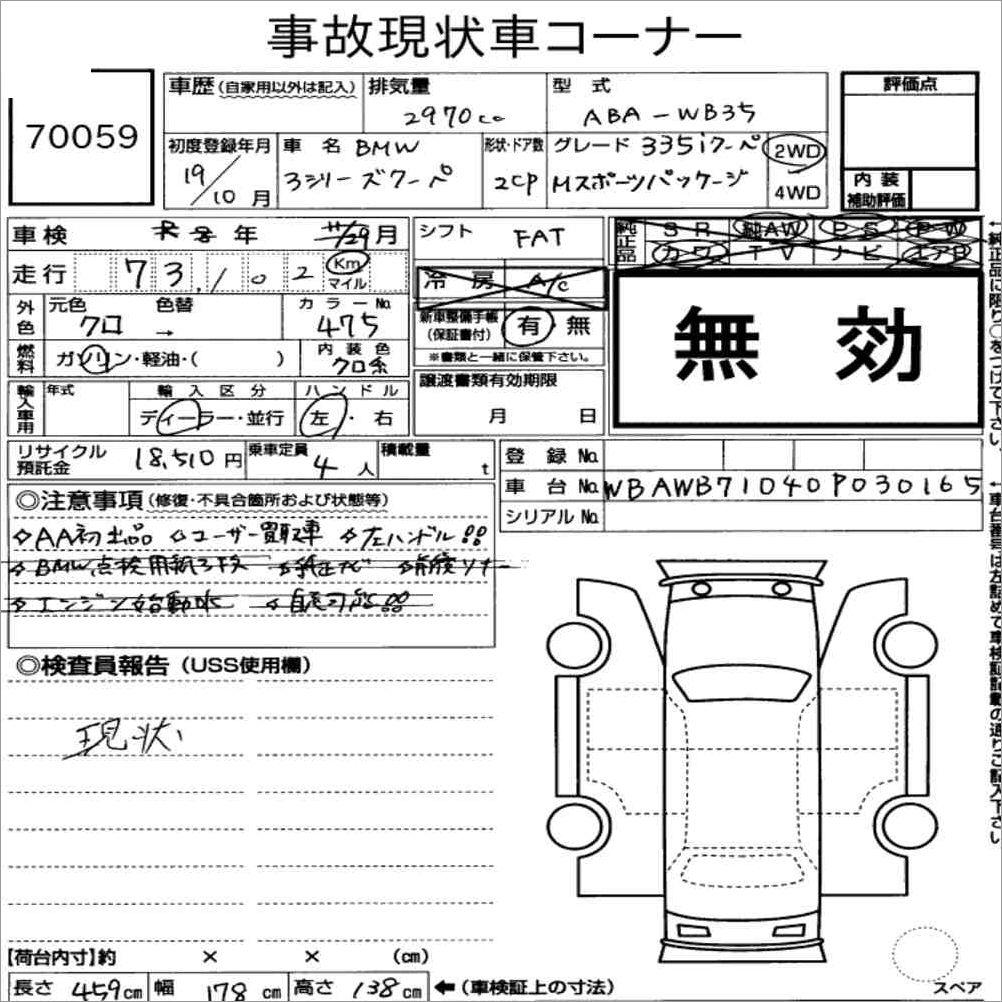 事故現状車コーナー
70059
車歴(自家用以外は記入)
排気量
2970cc
型式
ABA-WB35
評価点
初度登録年月
19/10月
車名 BMW
3シリーズクーペ
形状・ドア数
2CP
グレード 335iクーペ
Mスポーツパッケージ
2WD
4WD
内装
補助評価
車検 年 11/29月
シフト FAT
純正品
SR 純AW PS PW
カワ TV ナビ エアB
走行 73,102 Km
マイル
冷房 A/C
外色
元色 クロ
色替 →
カラーNo.
475
新車整備手帳
(保証書付)
有・無
※書類と一緒に保管下さい。
無効
燃料
ガソリン・軽油・( )
内装色
クロ系
輸入車用
年式
輸入区分
ディーラー・並行
ハンドル
左・右
譲渡書類有効期限
月 日
←純正品に限り○をつけて下さい。
リサイクル
預託金
18,510円
乗車定員
4人
積載量
t
登録No.
車台No. WBAWB71040P030165
シリアルNo.
◎注意事項(修復・不具合箇所および状態等)
☆AA初出品 ☆ユーザー買取車 ☆左ハンドル!!
☆BMW点検用紙3枚 ☆純正ナビ ☆前後ソナー
☆エンジン始動 ☆自走可能!!
←車台番号は左詰めで車検証記載の通りご記入下さい
◎検査員報告(USS使用欄)
現状
【荷台内寸】約 × × (cm)
長さ 459cm 幅 178cm 高さ 138cm ←(車検証上の寸法)
スペア